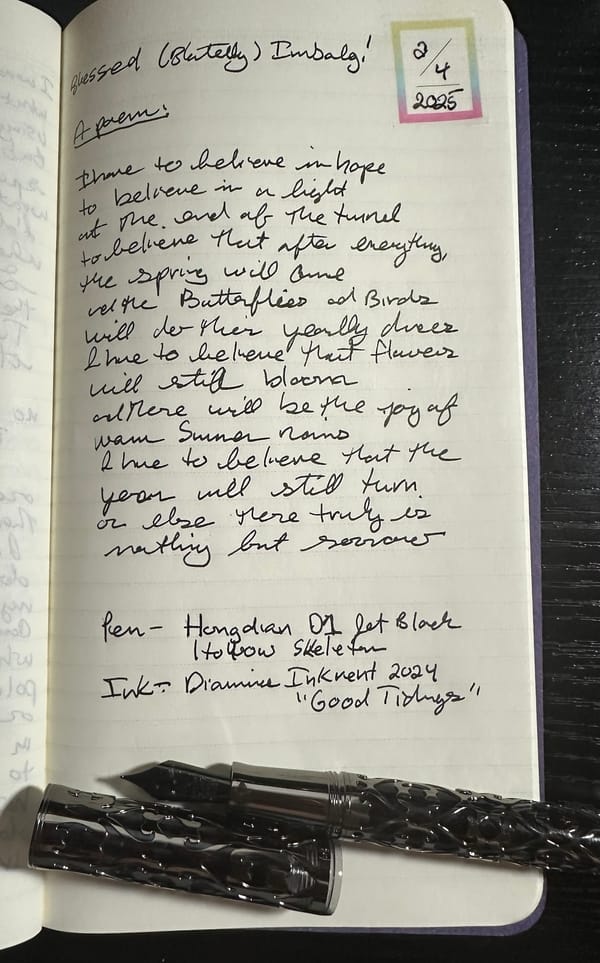 Blessed (Blatelly) Imbolg!
2/4
2025
A poem:
I have to believe in hope
to believe in a light
at the end of the tunnel
to believe that after everything,
the spring will come
and the Butterflies and Birds
will do their yearly dances
I have to believe that flowers
will still bloom
and there will be the joy of
warm Summer rains
I have to believe that the
year will still turn
or else there truly is
nothing but sorrow
Pen - Hongdian D1 Jet Black
Hollow Skeleton
Ink - Diamine Inkvent 2024
"Good Tidings"